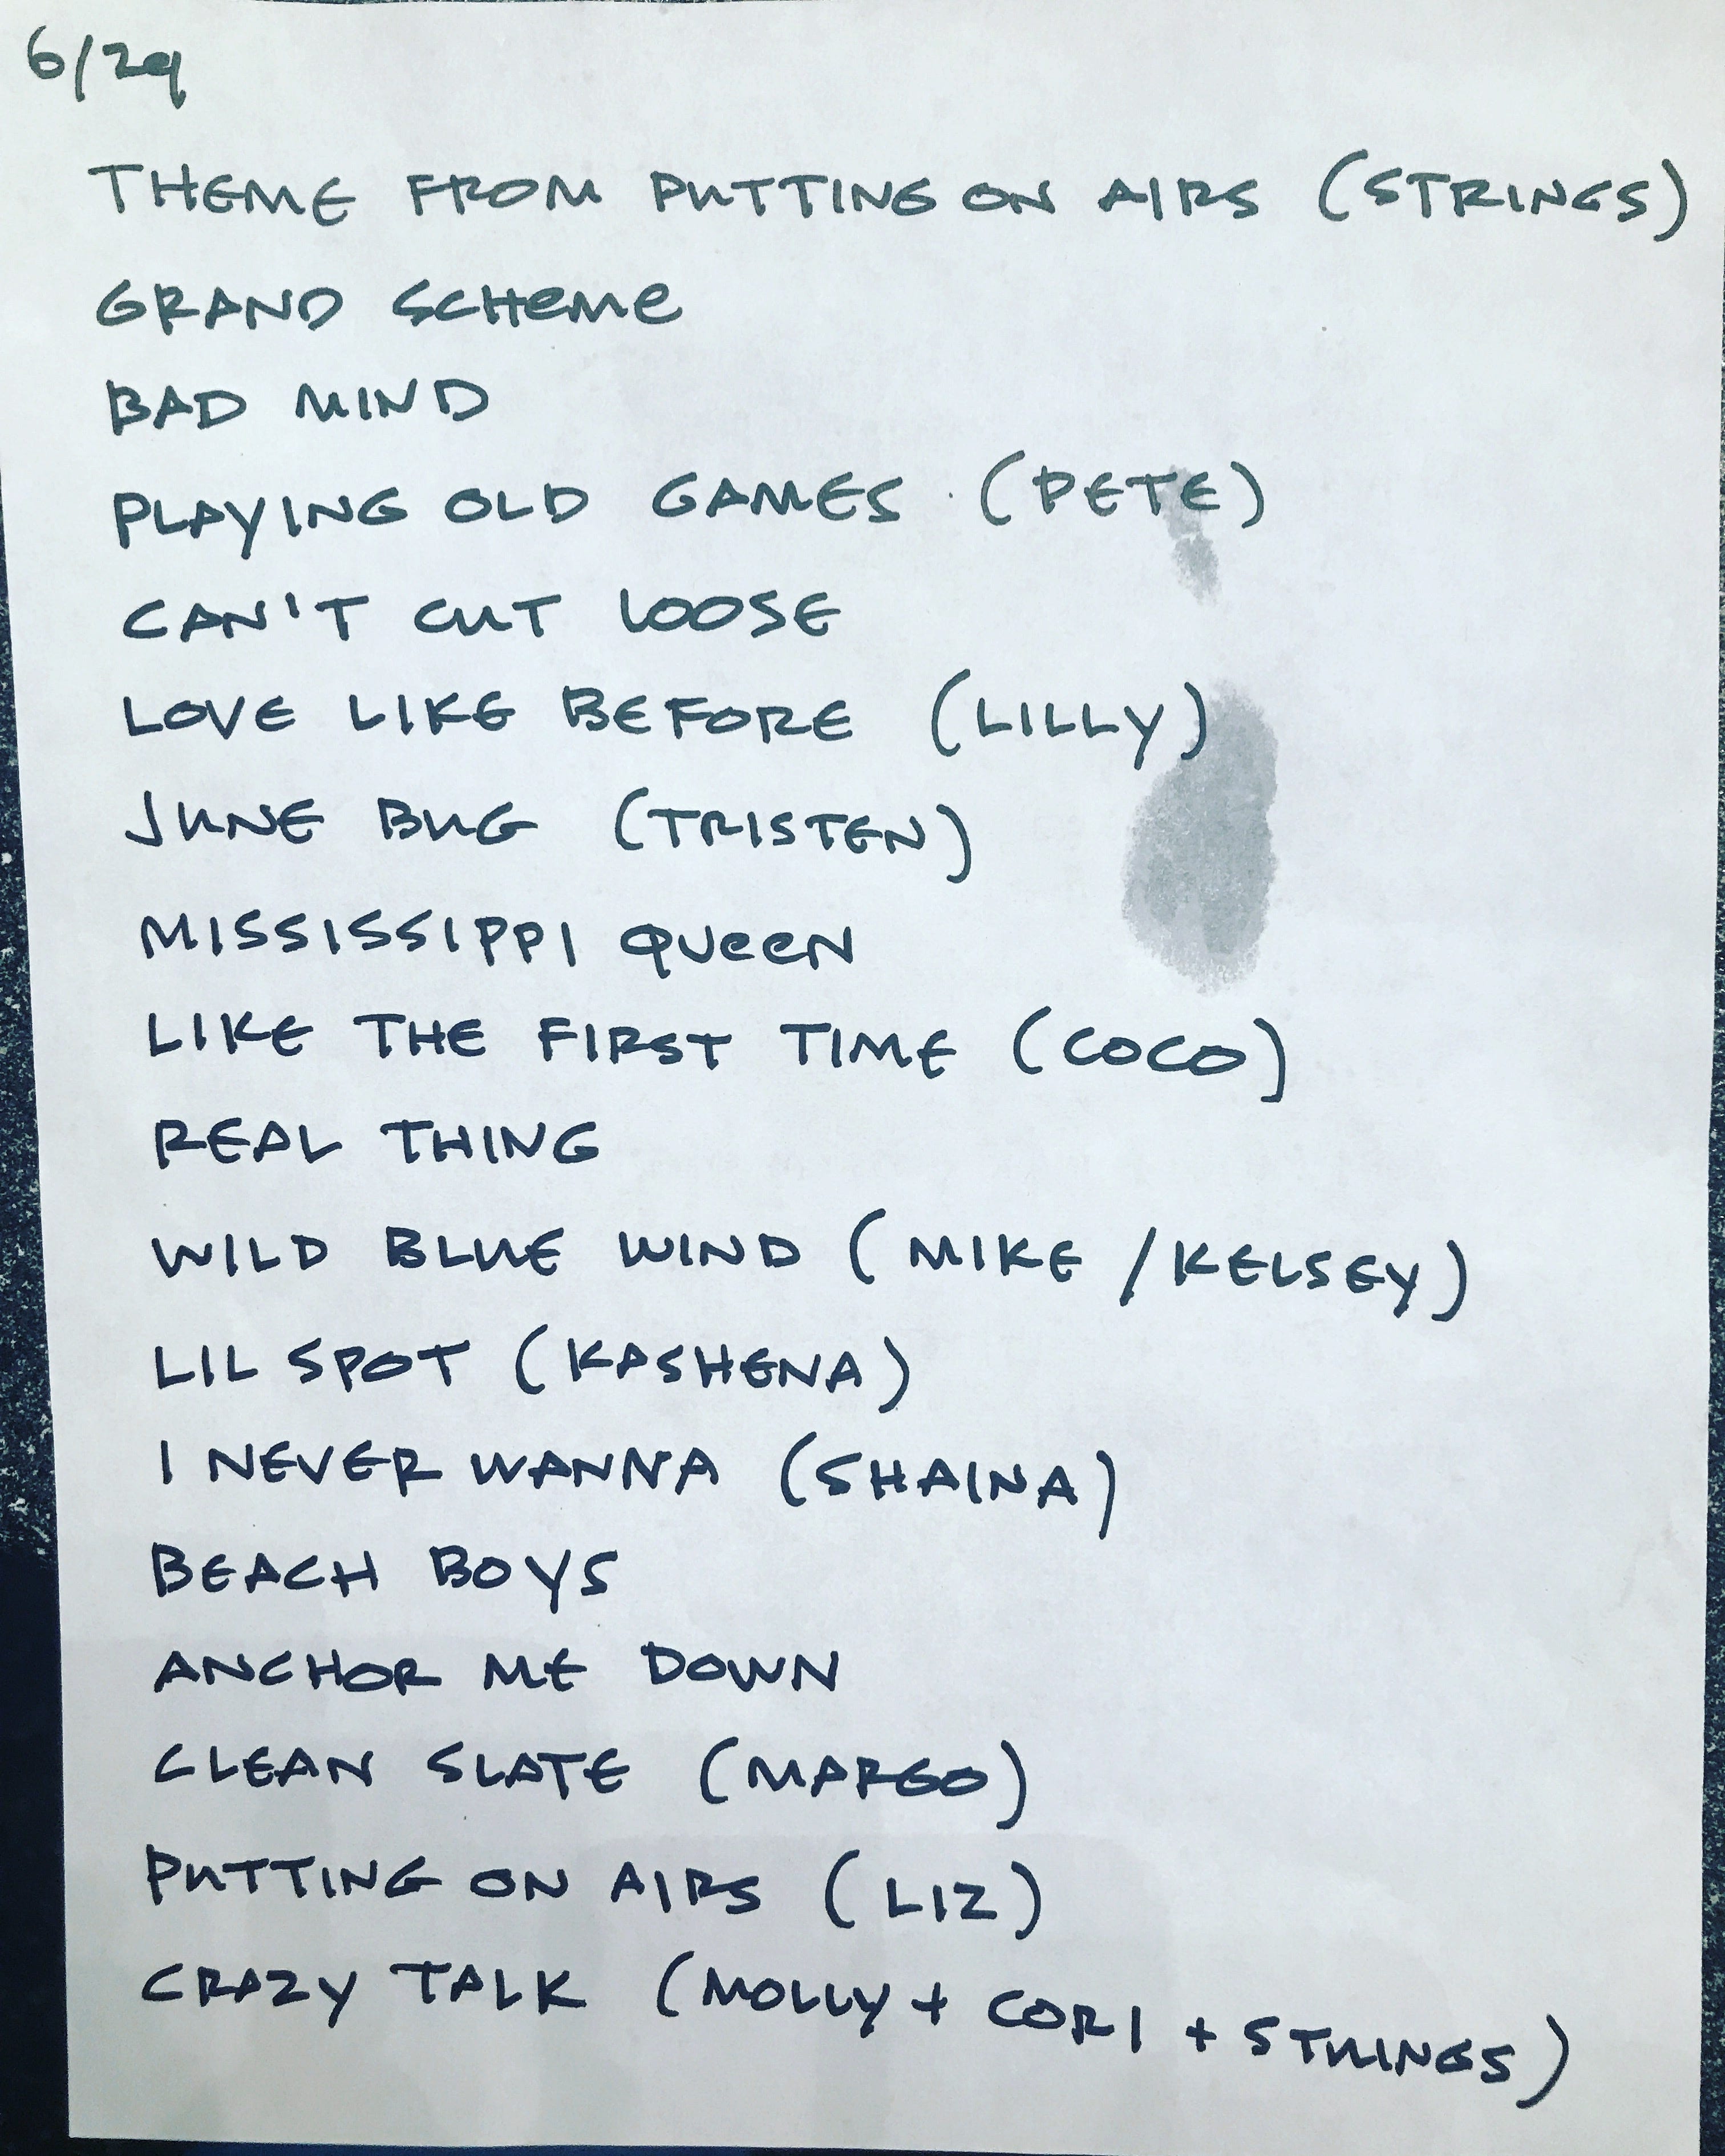 6/29
THEME FROM PUTTING ON AIRS (STRINGS)
GRAND SCHEME
BAD MIND
PLAYING OLD GAMES (PETE)
CAN'T CUT LOOSE
LOVE LIKE BEFORE (LILLY)
JUNE BUG (TRISTEN)
MISSISSIPPI QUEEN
LIKE THE FIRST TIME (COCO)
REAL THING
WILD BLUE WIND (MIKE / KELSEY)
LIL SPOT (KASHENA)
I NEVER WANNA (SHAINA)
BEACH BOYS
ANCHOR ME DOWN
CLEAN SLATE (MARGO)
PUTTING ON AIRS (LIZ)
CRAZY TALK (MOLLY + CORI + STRINGS)